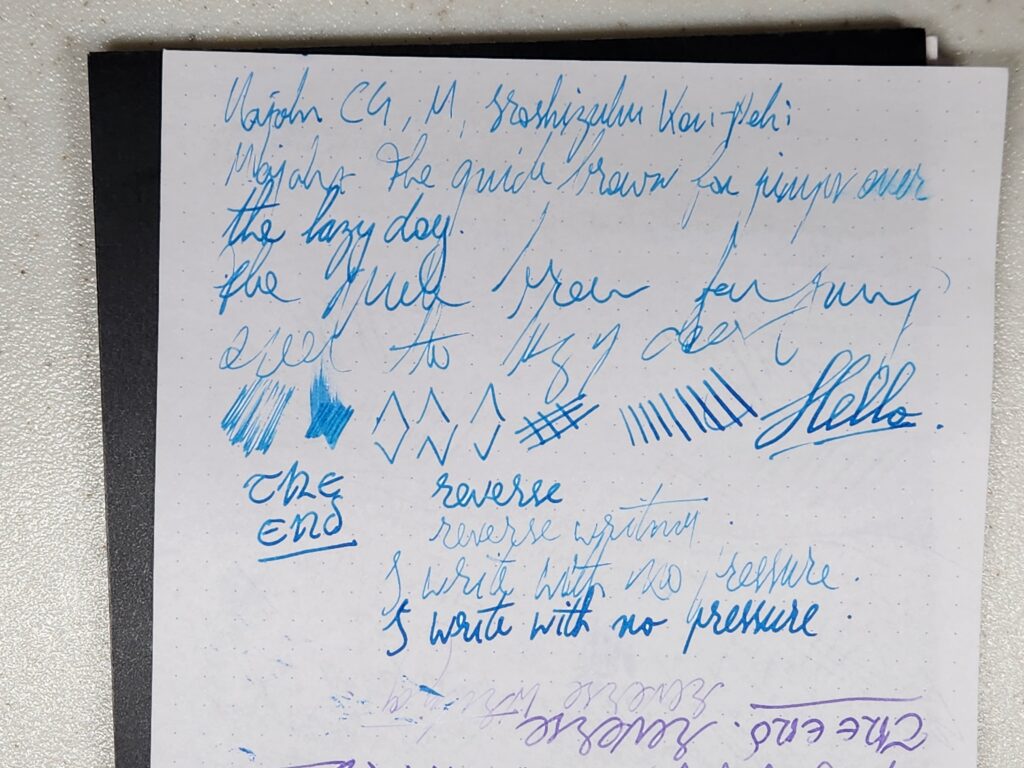 Majohn C4, M, Iroshizuku Kon-Peki
Majohn The quick brown fox jumps over
the lazy dog.
the quick brown fox jumps
over the lazy dog
Hello.
THE reverse
END reverse writing.
I write with no pressure.
I write with no pressure.
reverse writing
THE END. reverse